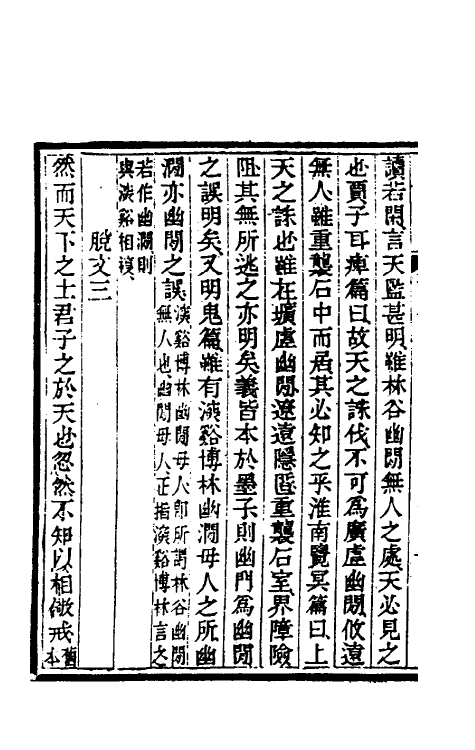 讀若閑言天監甚明雖林谷幽閒無人之處天必見之
也賈子耳痺篇曰故天之誅伐不可爲廣虛幽閒攸遠
無人雖重襲石中而居其必知之乎淮南覽冥篇曰上
天之誅也雖在壙虛幽閒遼遠隱匿重襲石室界障險
阻其無所逃之亦明矣義皆本於墨子則幽門爲幽閒
之誤明矣又明鬼篇雖有深谿博林幽澗毋人之所幽
澗亦幽閒之誤
深谿博林幽閒毋人卽所謂林谷幽閒
無人也幽閒毋人正指深谿博林言之
若作幽澗則
與深谿相複
脫文三
然而天下之士君子之於天也忽然不知以相儆戒舊本